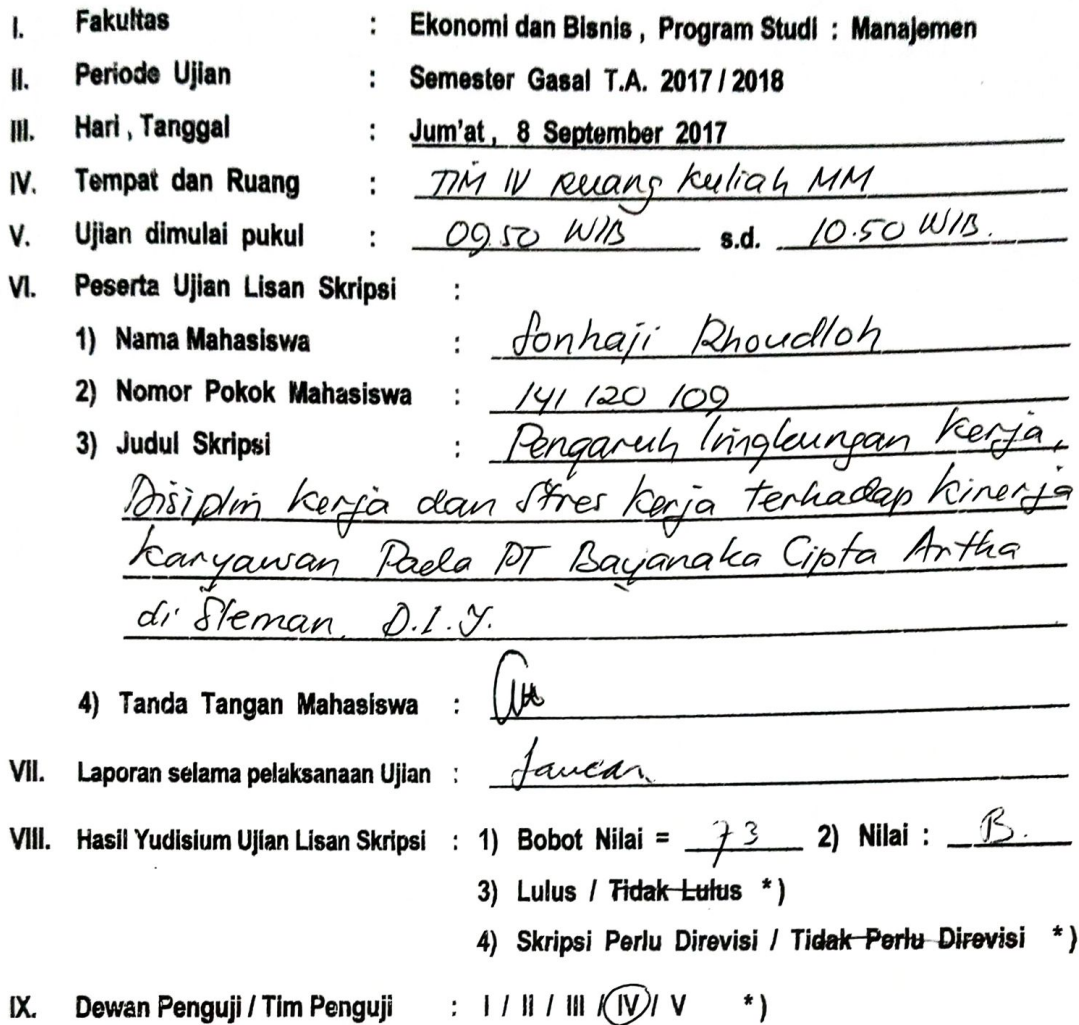 I. Fakultas : Ekonomi dan Bisnis , Program Studi : Manajemen
II. Periode Ujian : Semester Gasal T.A. 2017 / 2018
III. Hari , Tanggal : Jum'at , 8 September 2017
IV. Tempat dan Ruang : TIM IV Ruang Kuliah MM
V. Ujian dimulai pukul : 09.50 WIB s.d. 10.50 WIB.
VI. Peserta Ujian Lisan Skripsi :
1) Nama Mahasiswa : Sonhaji Rhoudloh
2) Nomor Pokok Mahasiswa : 141 120 109
3) Judul Skripsi : Pengaruh lingkungan kerja,
Disiplin kerja dan Stres kerja terhadap kinerja
karyawan Pada PT Bayanaka Cipta Artha
di Sleman. D.I.Y.
4) Tanda Tangan Mahasiswa :
VII. Laporan selama pelaksanaan Ujian : Lancar.
VIII. Hasil Yudisium Ujian Lisan Skripsi : 1) Bobot Nilai = 73 2) Nilai : B.
3) Lulus / Tidak Lulus *)
4) Skripsi Perlu Direvisi / Tidak Perlu Direvisi *)
IX. Dewan Penguji / Tim Penguji : I / II / III / IV / V *)